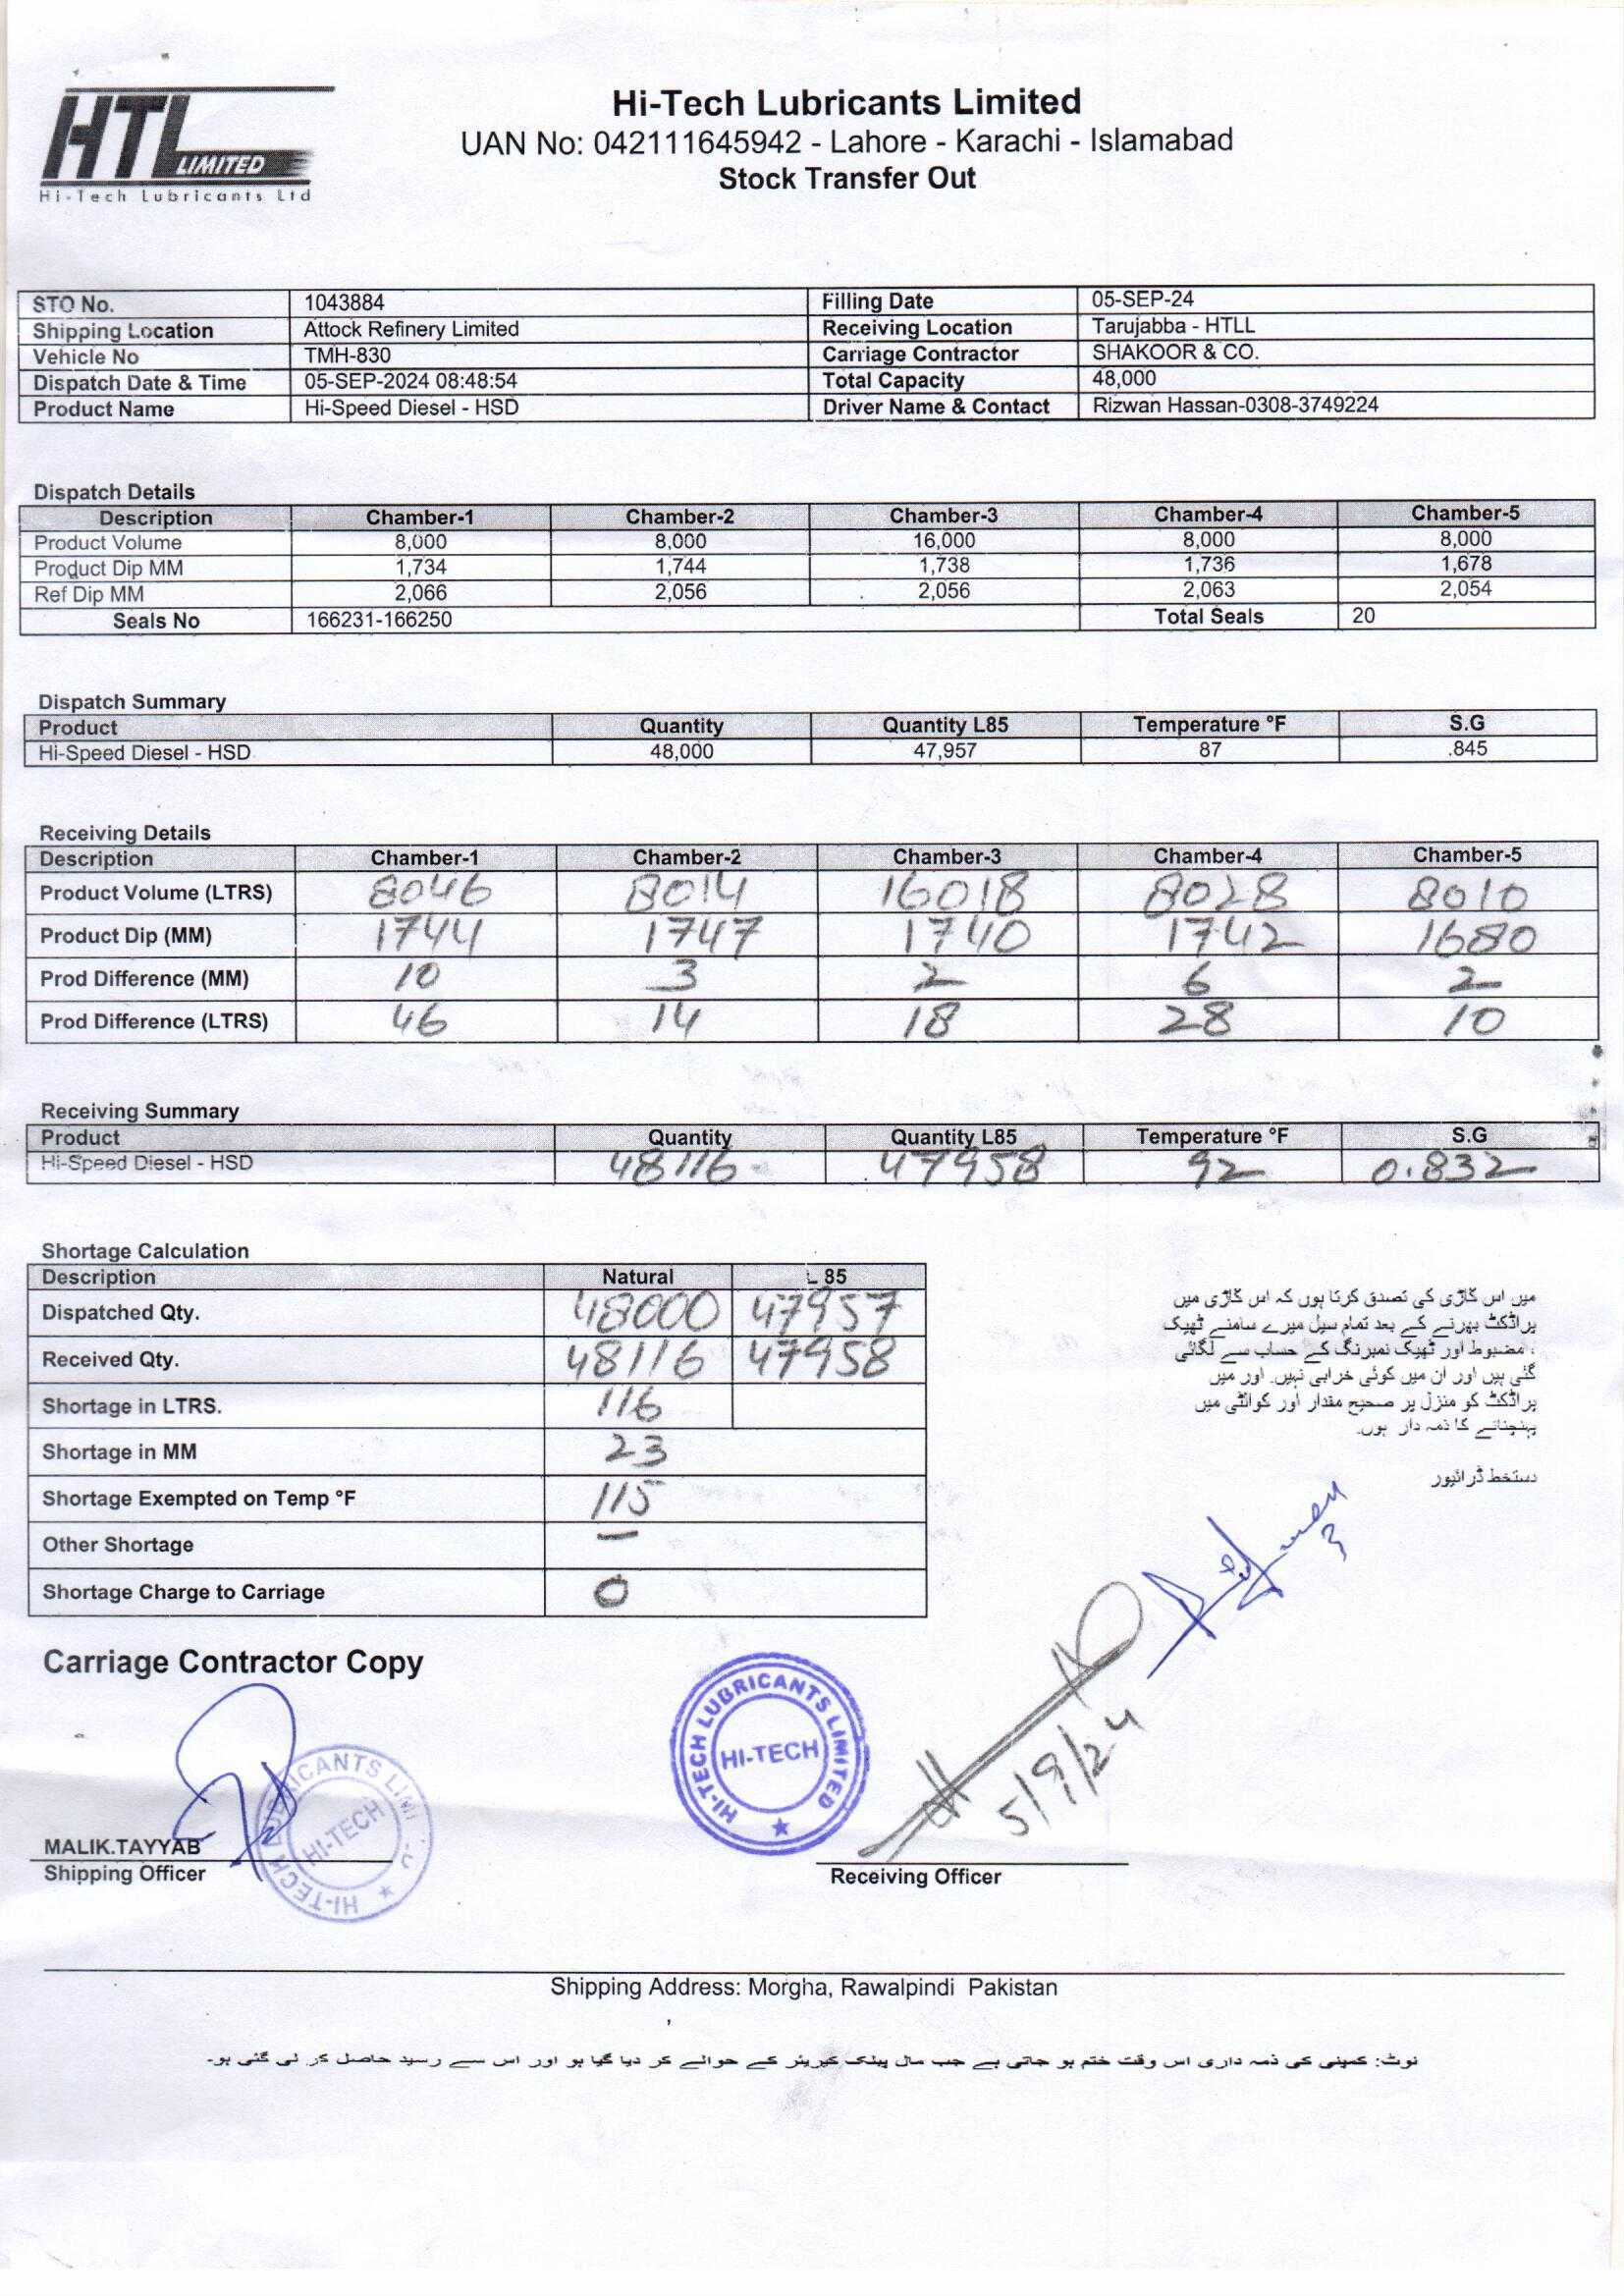 HTL LIMITED
Hi-Tech Lubricants Ltd
Hi-Tech Lubricants Limited
UAN No: 042111645942 - Lahore - Karachi - Islamabad
Stock Transfer Out
STO No. 1043884 Filling Date 05-SEP-24
Shipping Location Attock Refinery Limited Receiving Location Tarujabba - HTLL
Vehicle No TMH-830 Carriage Contractor SHAKOOR & CO.
Dispatch Date & Time 05-SEP-2024 08:48:54 Total Capacity 48,000
Product Name Hi-Speed Diesel - HSD Driver Name & Contact Rizwan Hassan-0308-3749224
Dispatch Details
Description Chamber-1 Chamber-2 Chamber-3 Chamber-4 Chamber-5
Product Volume 8,000 8,000 16,000 8,000 8,000
Product Dip MM 1,734 1,744 1,738 1,736 1,678
Ref Dip MM 2,066 2,056 2,056 2,063 2,054
Seals No 166231-166250 Total Seals 20
Dispatch Summary
Product Quantity Quantity L85 Temperature °F S.G
Hi-Speed Diesel - HSD 48,000 47,957 87 .845
Receiving Details
Description Chamber-1 Chamber-2 Chamber-3 Chamber-4 Chamber-5
Product Volume (LTRS) 8046 8014 16018 8028 8010
Product Dip (MM) 1744 1747 1740 1742 1680
Prod Difference (MM) 10 3 2 6 2
Prod Difference (LTRS) 46 14 18 28 10
Receiving Summary
Product Quantity Quantity L85 Temperature °F S.G
Hi-Speed Diesel - HSD 48116 47958 92 0.832
Shortage Calculation
Description Natural L 85
Dispatched Qty. 48000 47957
Received Qty. 48116 47958
Shortage in LTRS. 116
Shortage in MM 23
Shortage Exempted on Temp °F 115
Other Shortage —
Shortage Charge to Carriage 0
میں اس گاڑی کی تصدق کرتا ہوں کہ اس گاڑی میں
پراڈکٹ بھرنے کے بعد تمام سیل میرے سامنے ٹھیک
، مضبوط اور ٹھیک نمبرنگ کے حساب سے لگائی
گئی ہیں اور ان میں کوئی خرابی نہیں۔ اور میں
پراڈکٹ کو منزل پر صحیح مقدار اور کوالٹی میں
پہنچانے کا ذمہ دار ہوں۔
دستخط ڈرائیور
Carriage Contractor Copy
HI-TECH LUBRICANTS LIMITED
HI-TECH
HI-TECH LUBRICANTS LIMI
HI-TECH
5/9/24
MALIK.TAYYAB
Shipping Officer
Receiving Officer
Shipping Address: Morgha, Rawalpindi Pakistan
نوٹ: کمپنی کی ذمہ داری اس وقت ختم ہو جاتی ہے جب مال پبلک کیریئر کے حوالے کر دیا گیا ہو اور اس سے رسید حاصل کر لی گئی ہو۔